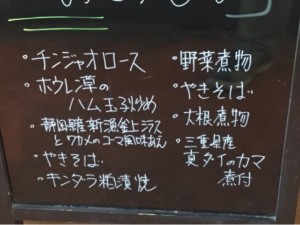 ・チンジャオロース
・ホウレン草の
ハム玉子炒め
・静岡県新漁釜上シラス
とワカメのゴマ風味あえ
・やきそば
・キンダラ粕漬焼
・野菜煮物
・やきそば
・大根煮物
・三重県産
真ダイのカマ
煮付